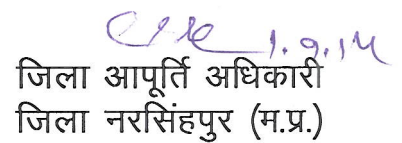 1.9.14
जिला आपूर्ति अधिकारी
जिला नरसिंहपुर (म.प्र.)